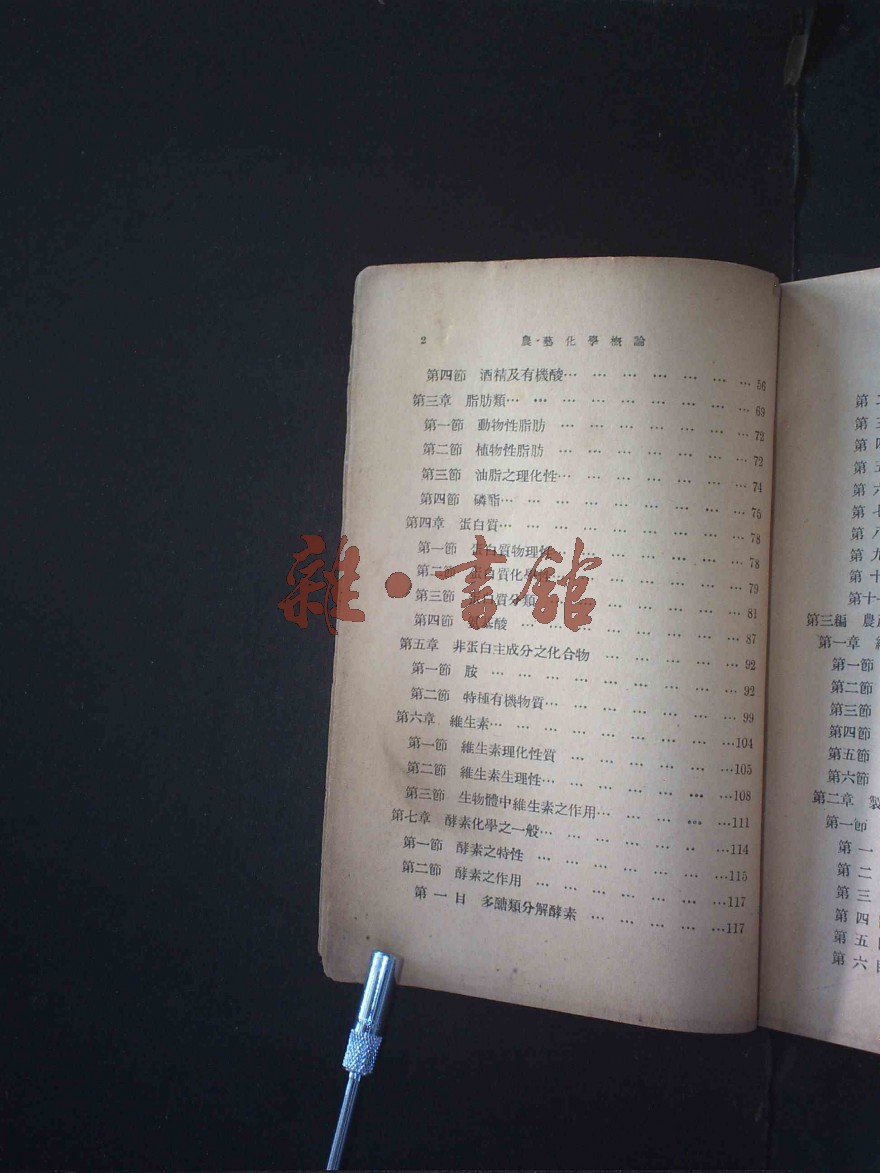 2 農藝化學概論
第四節 酒精及有機酸… … … … … … … … 56
第三章 脂肪類… … … … … … … … … 69
第一節 動物性脂肪 … … … … … … … 72
第二節 植物性脂肪 … … … … … … … 72
第三節 油脂之理化性… … … … … … … 74
第四節 磷脂… … … … … … … … … 75
第四章 蛋白質… … … … … … … … … 78
第一節 蛋白質物理性… … … … … … … 78
第二節 蛋白質化學性… … … … … … … 79
第三節 蛋白質分類 … … … … … … … 81
第四節 氨基酸 … … … … … … … … 87
第五章 非蛋白主成分之化合物 … … … … … 92
第一節 胺 … … … … … … … … … 92
第二節 特種有機物質… … … … … … … 99
第六章 維生素… … … … … … … … …104
第一節 維生素理化性質 … … … … … …105
第二節 維生素生理性… … … … … … …108
第三節 生物體中維生素之作用… … … … …111
第七章 酵素化學之一般… … … … … … …114
第一節 酵素之特性 … … … … … … …115
第二節 酵素之作用 … … … … … … …117
第一目 多醣類分解酵素 … … … … …117
雜·書館
第三編 農
第一章
第一節
第二節
第三節
第四節
第五節
第六節
第二章 製
第一節
第一
第二
第三
第四
第五
第六